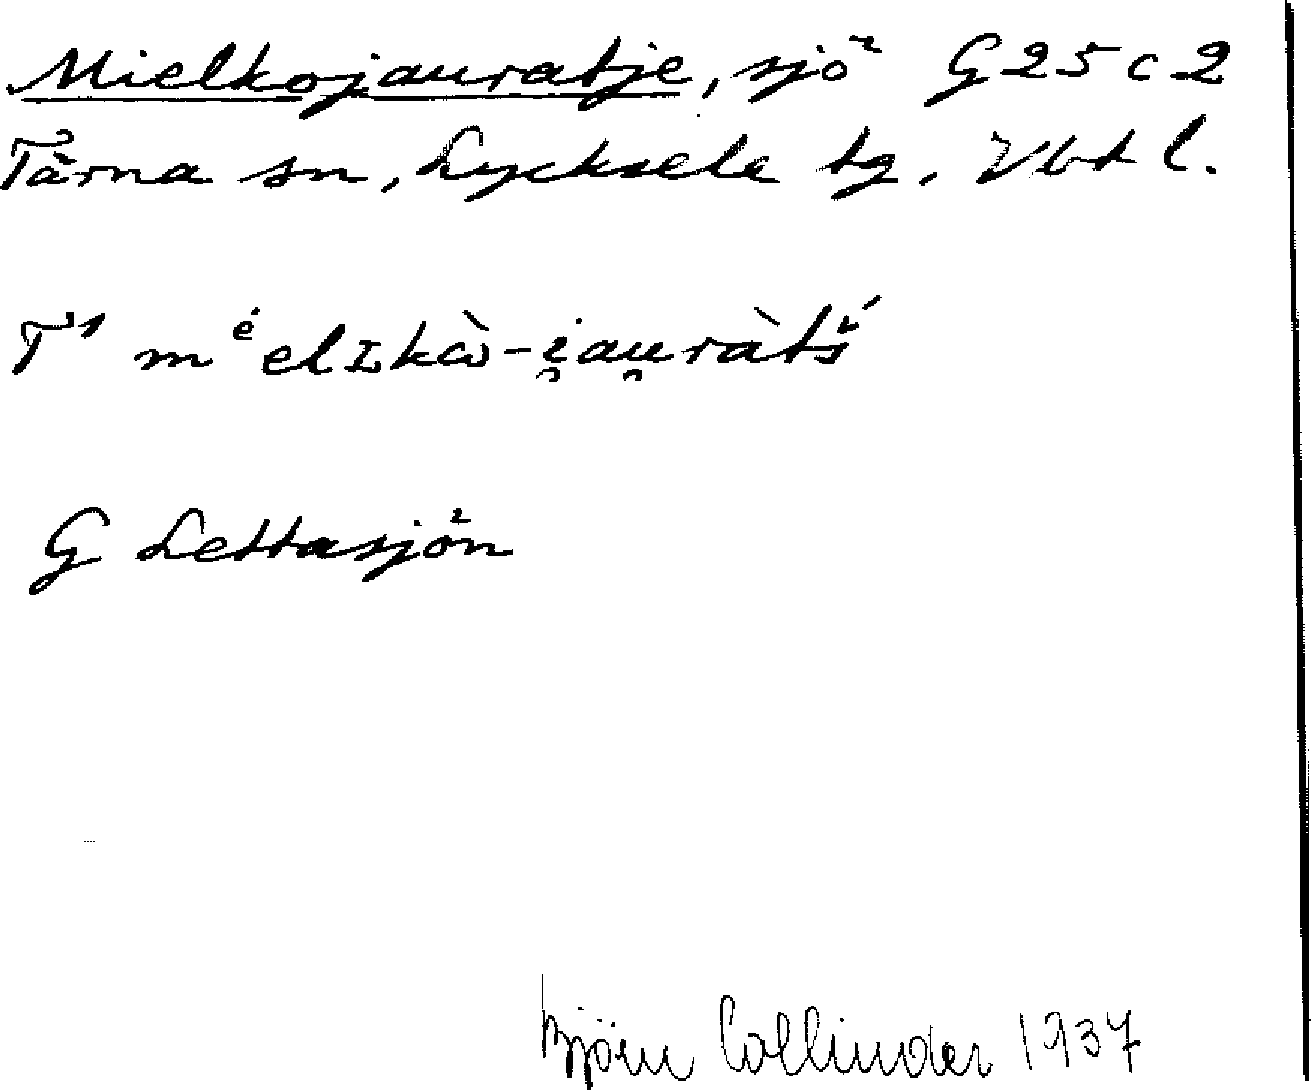 Mielkojauratje, sjö G25c2
Tärna sn, Lycksele tg, Vbtl.
T¹ mᵉ̇elɪkὼ-i̯au̯ràtš́
G Lettasjön
Björn Collinder 1937